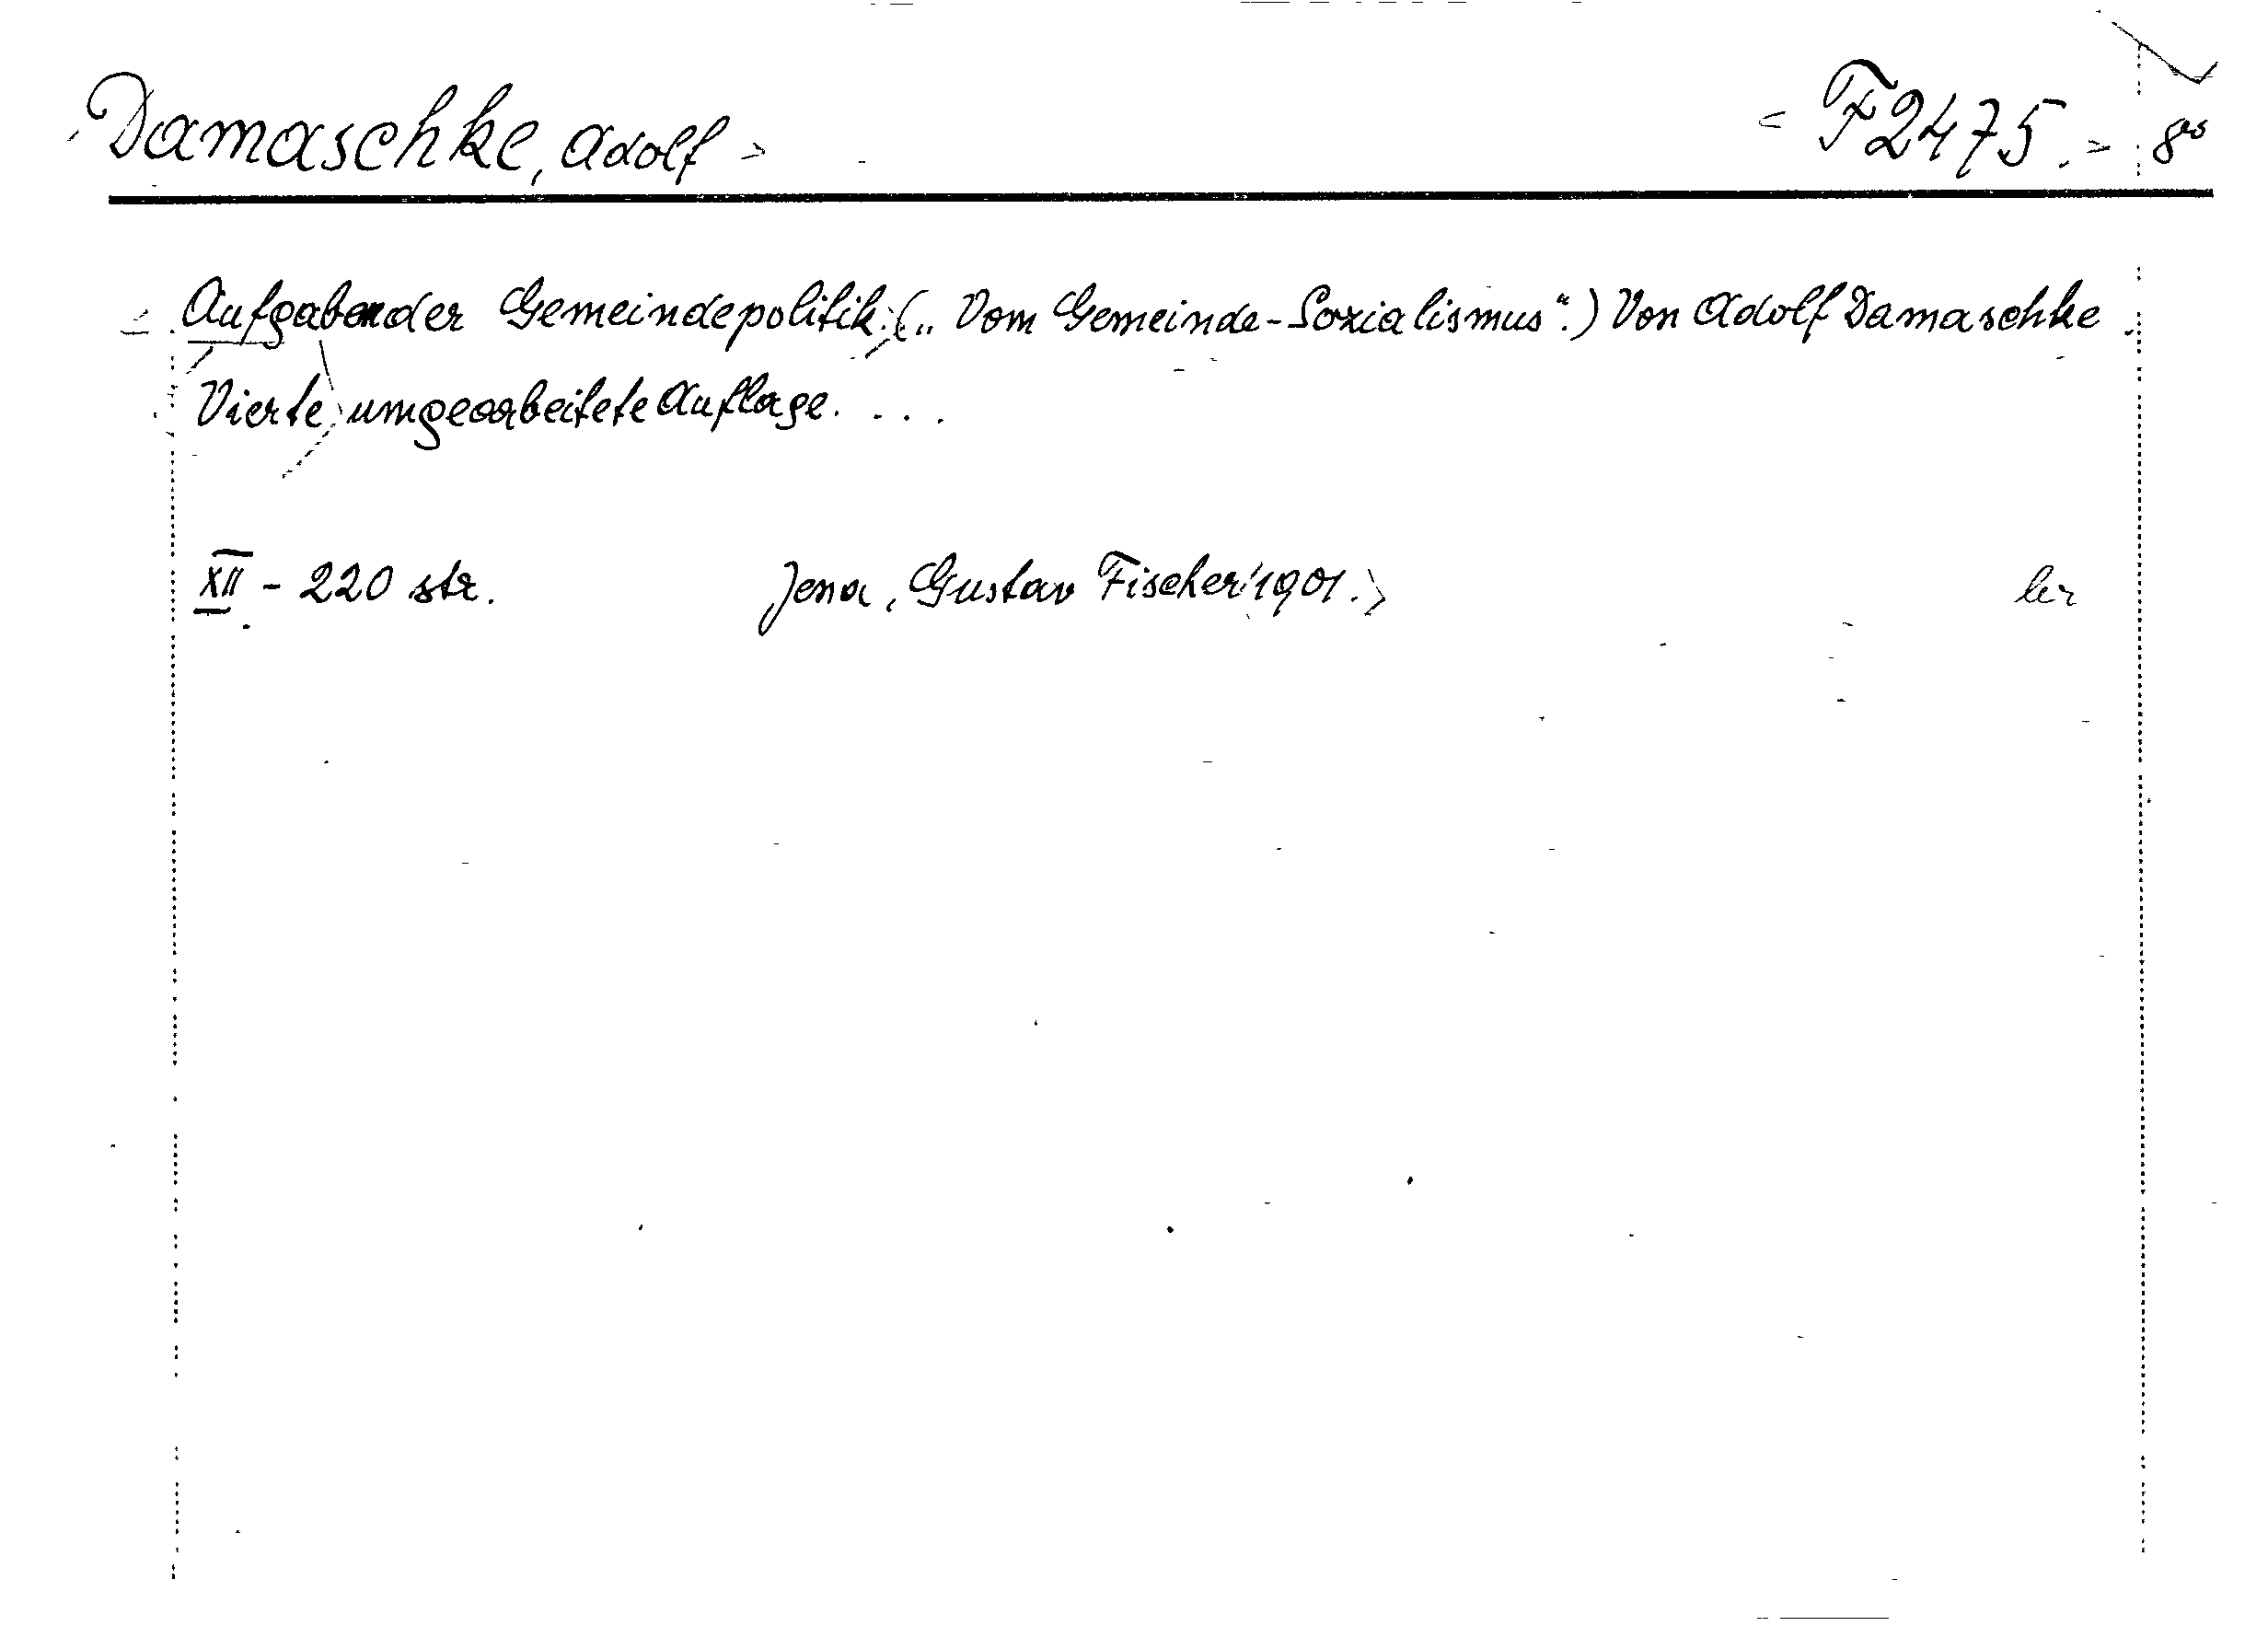 Damaschke, Adolf F2475. 8°
Aufgaben der Gemeindepolitik. („Vom Gemeinde-Sozialismus“.) Von Adolf Damaschke.
Vierte umgearbeitete Auflage. . . .
XII - 220 str. Jena, Gustav Fischer 1901.